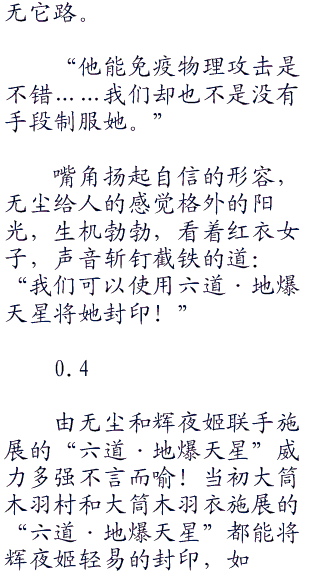 无它路。
“他能免疫物理攻击是
不错……我们却也不是没有
手段制服她。”
嘴角扬起自信的形容，
无尘给人的感觉格外的阳
光，生机勃勃，看着红衣女
子，声音斩钉截铁的道：
“我们可以使用六道·地爆
天星将她封印！”
0.4
由无尘和辉夜姬联手施
展的“六道·地爆天星”威
力多强不言而喻！当初大筒
木羽村和大筒木羽衣施展的
“六道·地爆天星”都能将
辉夜姬轻易的封印，如